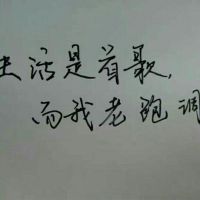 生活是首歌,
而我老跑调